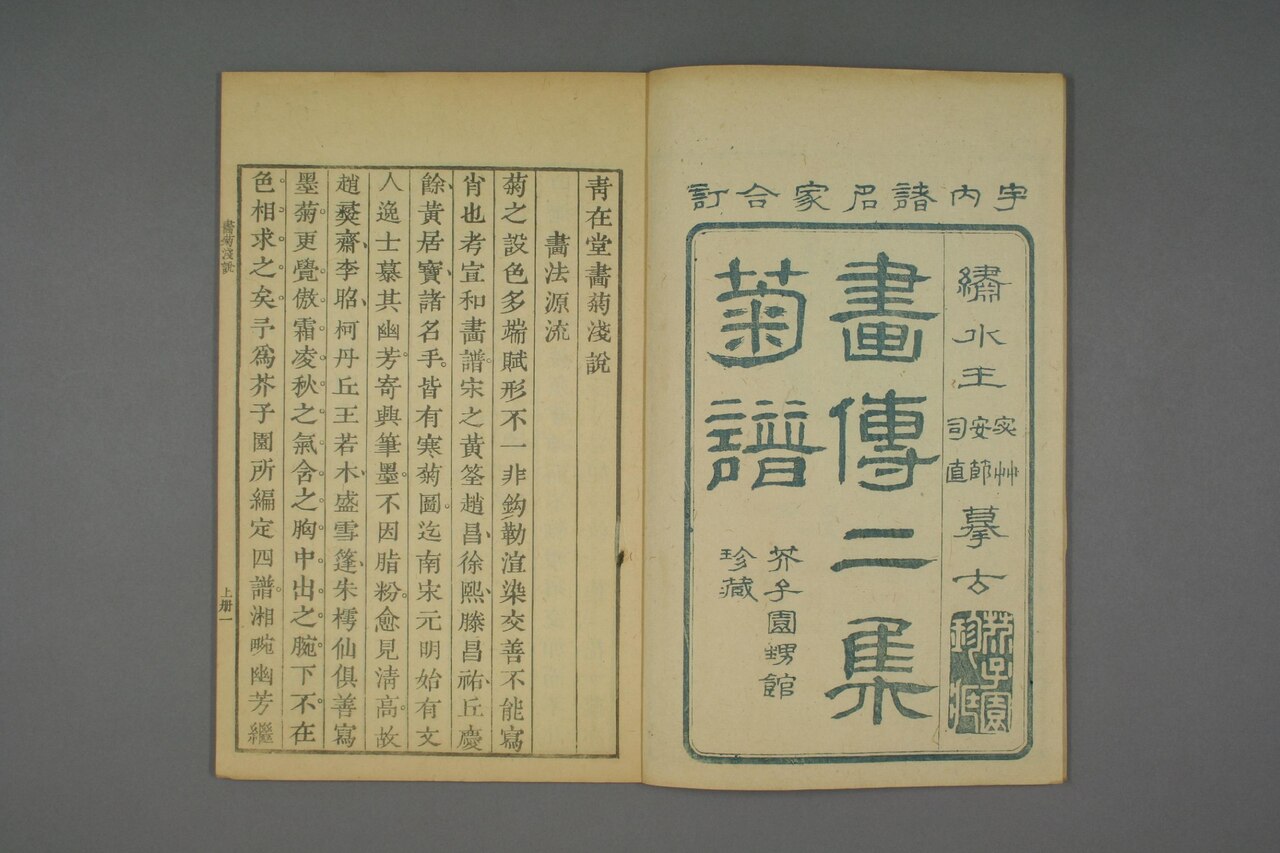 宇內諸名家合訂
繡水王宓艸安節司直摹古
芥子園
畫傳二集
菊譜
芥子園甥館
珍藏
青在堂畫菊淺說
畫法源流
菊之設色多端賦形不一非鈎勒渲染交善不能寫
肖也考宣和畫譜宋之黃筌趙昌徐熙滕昌祐丘慶
餘黃居寶諸名手皆有寒菊圖迄南宋元明始有文
人逸士慕其幽芳寄興筆墨不因脂粉愈見清高故
趙彝齋李昭柯丹丘王若木盛雪篷朱樗仙俱善寫
墨菊更覺傲霜凌秋之氣含之胸中出之腕下不在
色相求之矣予爲芥子園所編定四譜湘畹幽芳繼
畫菊淺說
上册一